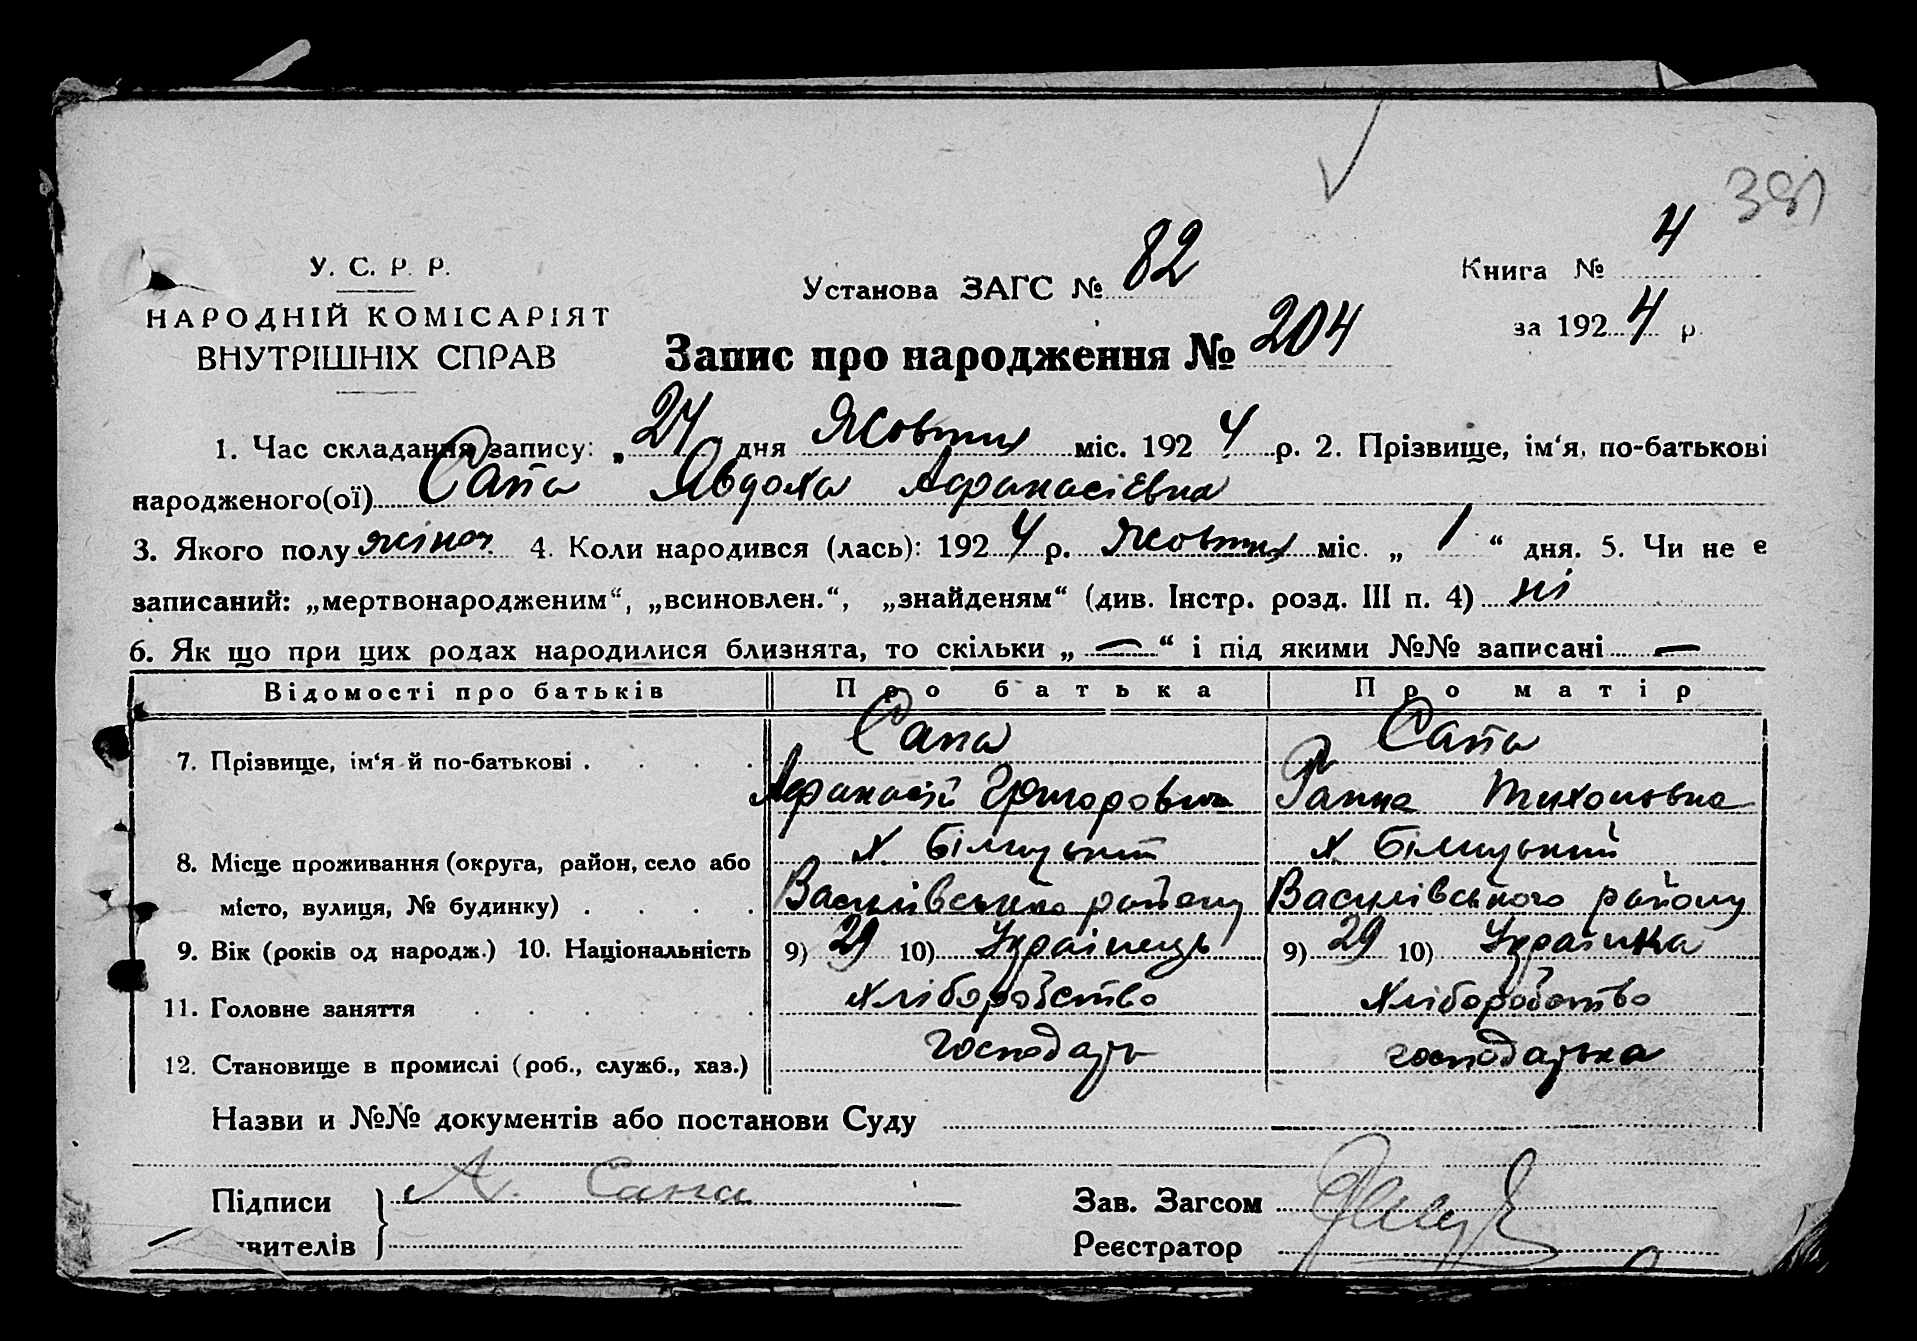 391
У. С. Р. Р.
НАРОДНІЙ КОМІСАРІЯТ
ВНУТРІШНІХ СПРАВ
Установа ЗАГС № 82
Книга № 4
за 1924 р.
Запис про народження № 204
1. Час складання запису: „24 дня Жовтня міс. 1924 р. 2. Прізвище, ім‘я, по-батькові
народженого(ої) Сапа Явдоха Афанасієвна
3. Якого полу жіноч. 4. Коли народився (лась): 1924 р. Жовтня міс. „ 1 “ дня. 5. Чи не є
записаний: „мертвонародженим“, „всиновлен.“, „знайденям“ (див. Інстр. розд. III п. 4) ні
6. Як що при цих родах народилися близнята, то скільки „ — “ і під якими №№ записані —
Відомості про батьків Про батька Про матір
7. Прізвище, ім‘я й по-батькові . . . . Сапа Сапа
Афанасій Григорович Ганна Тихоновна
8. Місце проживання (округа, район, село або х. Білицький х. Білицький
місто, вулиця, № будинку) . . . . Василівського району Василівського району
9. Вік (років од народж.) 10. Національність 9) 29 10) Українець 9) 29 10) Українка
11. Головне заняття . . . . . . Хліборобство Хліборобство
12. Становище в промислі (роб., служб., хаз.) господарь господарька
Назви и №№ документів або постанови Суду
Підписи А. Сапа Зав. Загсом
явителів Реєстратор